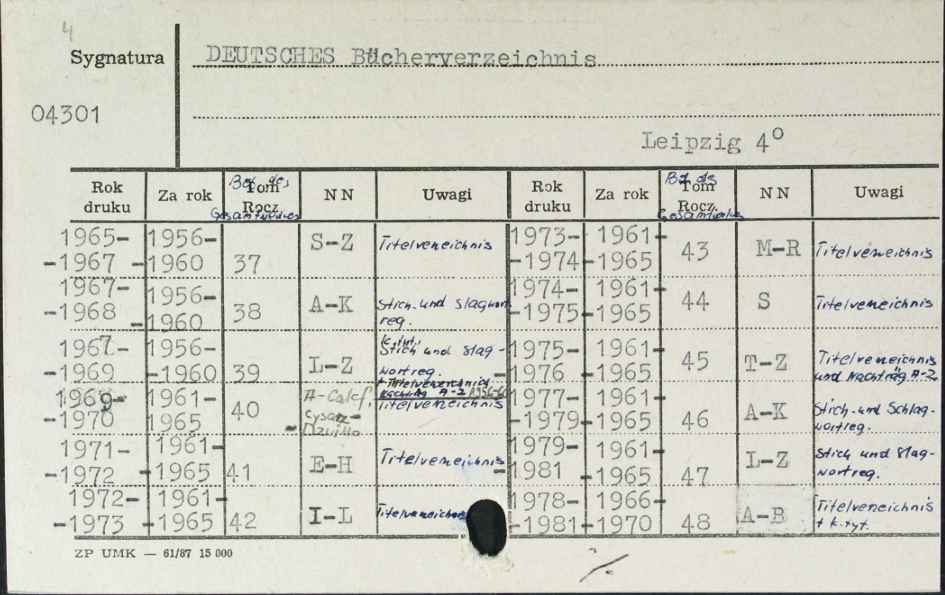 4
Sygnatura DEUTSCHES Bücherverzeichnis
04301
Leipzig 4°
Rok druku Za rok Bd. des Gesamtwerkes Tom Rocz. NN Uwagi Rok druku Za rok Bd. des Tom Rocz. NN Uwagi
1965- 1956- S-Z Titelverzeichnis 1973- 1961- 43 M-R Titelverzeichnis
-1967 -1960 37 -1974 -1965
1967- 1956- A-K Stich- und Slagwort 1974- 1961- 44 S Titelverzeichnis
-1968 -1960 38 reg. -1975 -1965
1967- 1956- L-Z Stich und Slag- 1975- 1961- 45 T-Z Titelverzeichnis
-1969 -1960 39 wortreg. -1976 -1965 und Nachträg A-Z
+ Titelverzeichnis
Nachträg A-Z
1969- 1961- 40 A-Calef, Titelverzeichnis 1977- 1961- 46 A-K Stich- und Schlag-
-1970 1965 -1979 -1965 wortreg.
1971- 1961- E-H Titelverzeichnis 1979- 1961- L-Z Stich und Slag-
-1972 -1965 41 -1981 -1965 47 wortreg.
1972- 1961- I-L 1978- 1966- A-B Titelverzeichnis
-1973 -1965 42 -1981 -1970 48 + k.tyt.
ZP UMK — 61/87 15 000